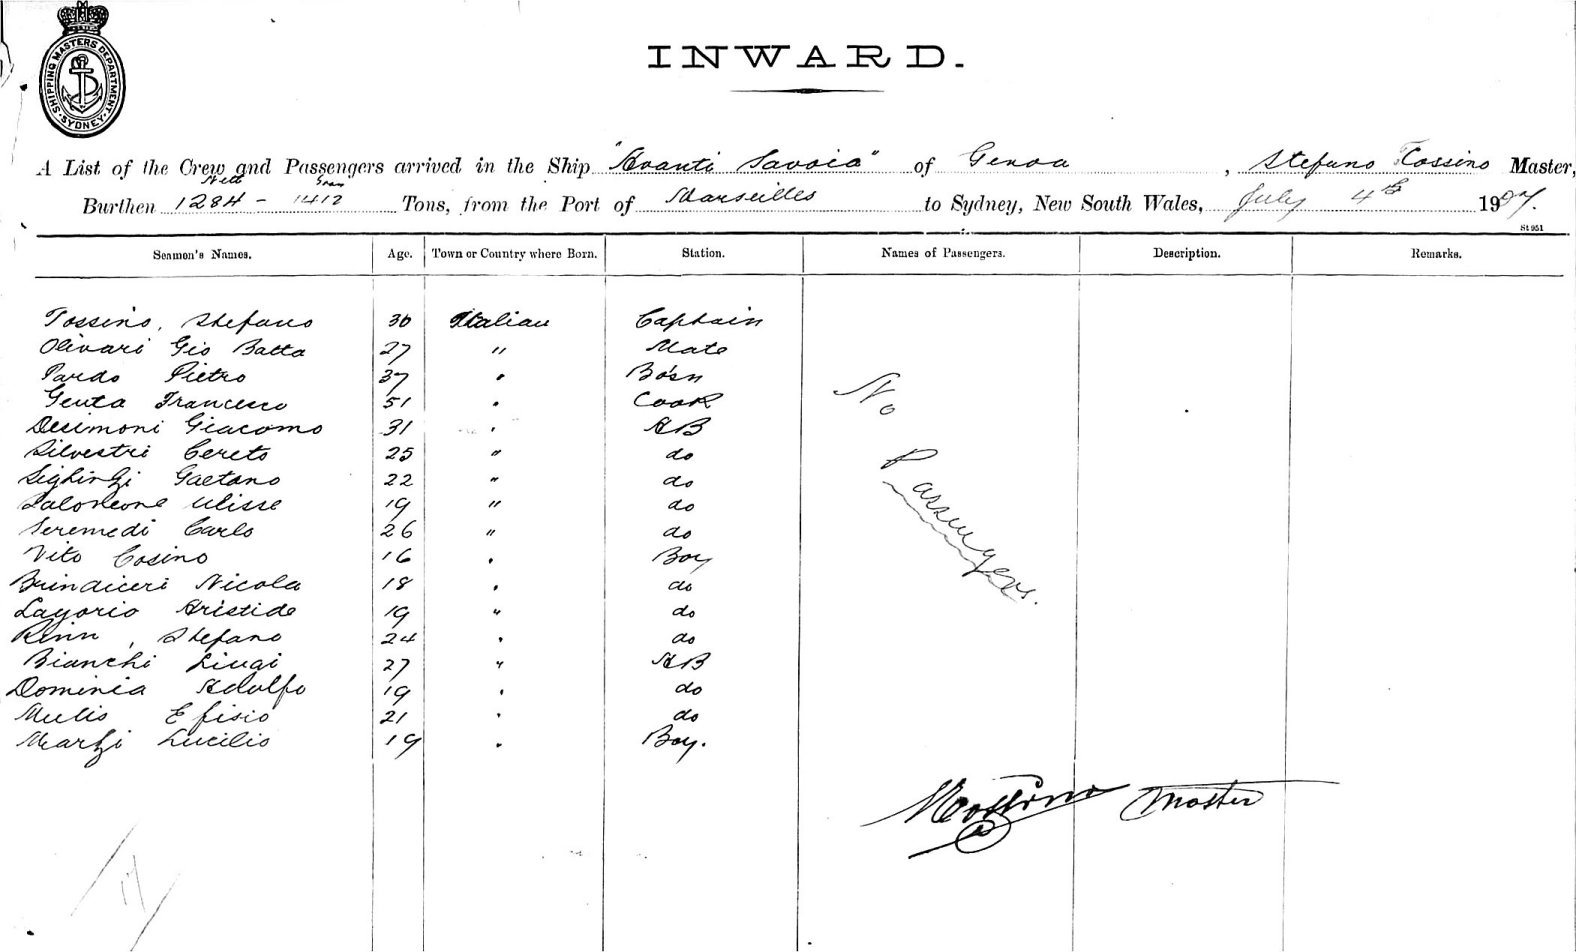 SHIPPING MASTERS DEPARTMENT. SYDNEY.
INWARD.
A List of the Crew and Passengers arrived in the Ship "Avanti Savoia" of Genoa, Stefano Tossino Master,
Nett Gross
Burthen 1284 - 1412 Tons, from the Port of Marseilles to Sydney, New South Wales, July 4th 1907.
St 951
Seamen's Names. Age. Town or Country where Born. Station. Names of Passengers. Description. Remarks.
Tossino, Stefano 30 Italian Captain
Olivari Gio Batta 27 " Mate
Pardo Pietro 37 " Bosn
Genta Francesco 51 " Cook
Desimoni Giacomo 31 " AB
Silvestri Cereto 25 " do
Gaetano 22 " do
Ulisse 19 " do
Seremedi Carlo 26 " do
Vito Cosino 16 " Boy
Brindiceri Nicola 18 " do
Lagorio Aristide 19 " do
Rinn, Stefano 24 " do
Bianchi Liugi 27 " AB
Dominia Adolfo 19 " do
Mulis Efisio 21 " do
Marzi Lucilio 19 " Boy.
No Passengers.
Master
17